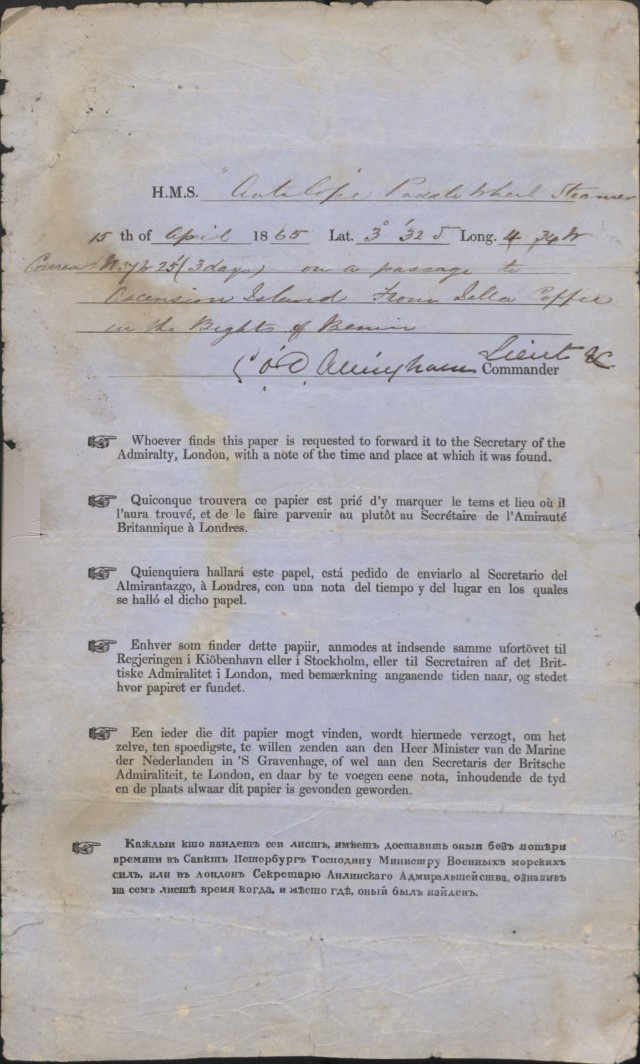 H.M.S. "Antelope" Paddle Wheel Steamer
15 th of April 1865 Lat. 3° 32' S Long. 4 34 W
Current N 72 W 25' (3 days) on a passage to
Ascension Island From Jella Coffee
in the Bights of Benin
Allingham Lieut &c
Commander
☞ Whoever finds this paper is requested to forward it to the Secretary of the
Admiralty, London, with a note of the time and place at which it was found.
☞ Quiconque trouvera ce papier est prié d'y marquer le tems et lieu où il
l'aura trouvé, et de le faire parvenir au plutôt au Secrétaire de l'Amirauté
Britannique à Londres.
☞ Quienquiera hallará este papel, está pedido de enviarlo al Secretario del
Almirantazgo, à Londres, con una nota del tiempo y del lugar en los quales
se halló el dicho papel.
☞ Enhver som finder dette papiir, anmodes at indsende samme ufortövet til
Regjeringen i Kiöbenhavn eller i Stockholm, eller til Secretairen af det Brit-
tiske Admiralitet i London, med bemærkning angaaende tiden naar, og stedet
hvor papiret er fundet.
☞ Een ieder die dit papier mogt vinden, wordt hiermede verzogt, om het
zelve, ten spoedigste, te willen zenden aan den Heer Minister van de Marine
der Nederlanden in 'S Gravenhage, of wel aan den Secretaris der Britsche
Admiraliteit, te London, en daar by te voegen eene nota, inhoudende de tyd
en de plaats alwaar dit papier is gevonden geworden.
☞ Каждыи кто наидетъ сеи листъ, имѣетъ доставить оныи безъ потери
времяни въ Санктъ Петербургъ Господину Министру Военныхъ морскихъ
силъ, или въ Лондонъ Секретарю Англинскаго Адмиральтейства, означивъ
на семъ листѣ время когда, и мѣсто гдѣ, оный былъ найденъ.